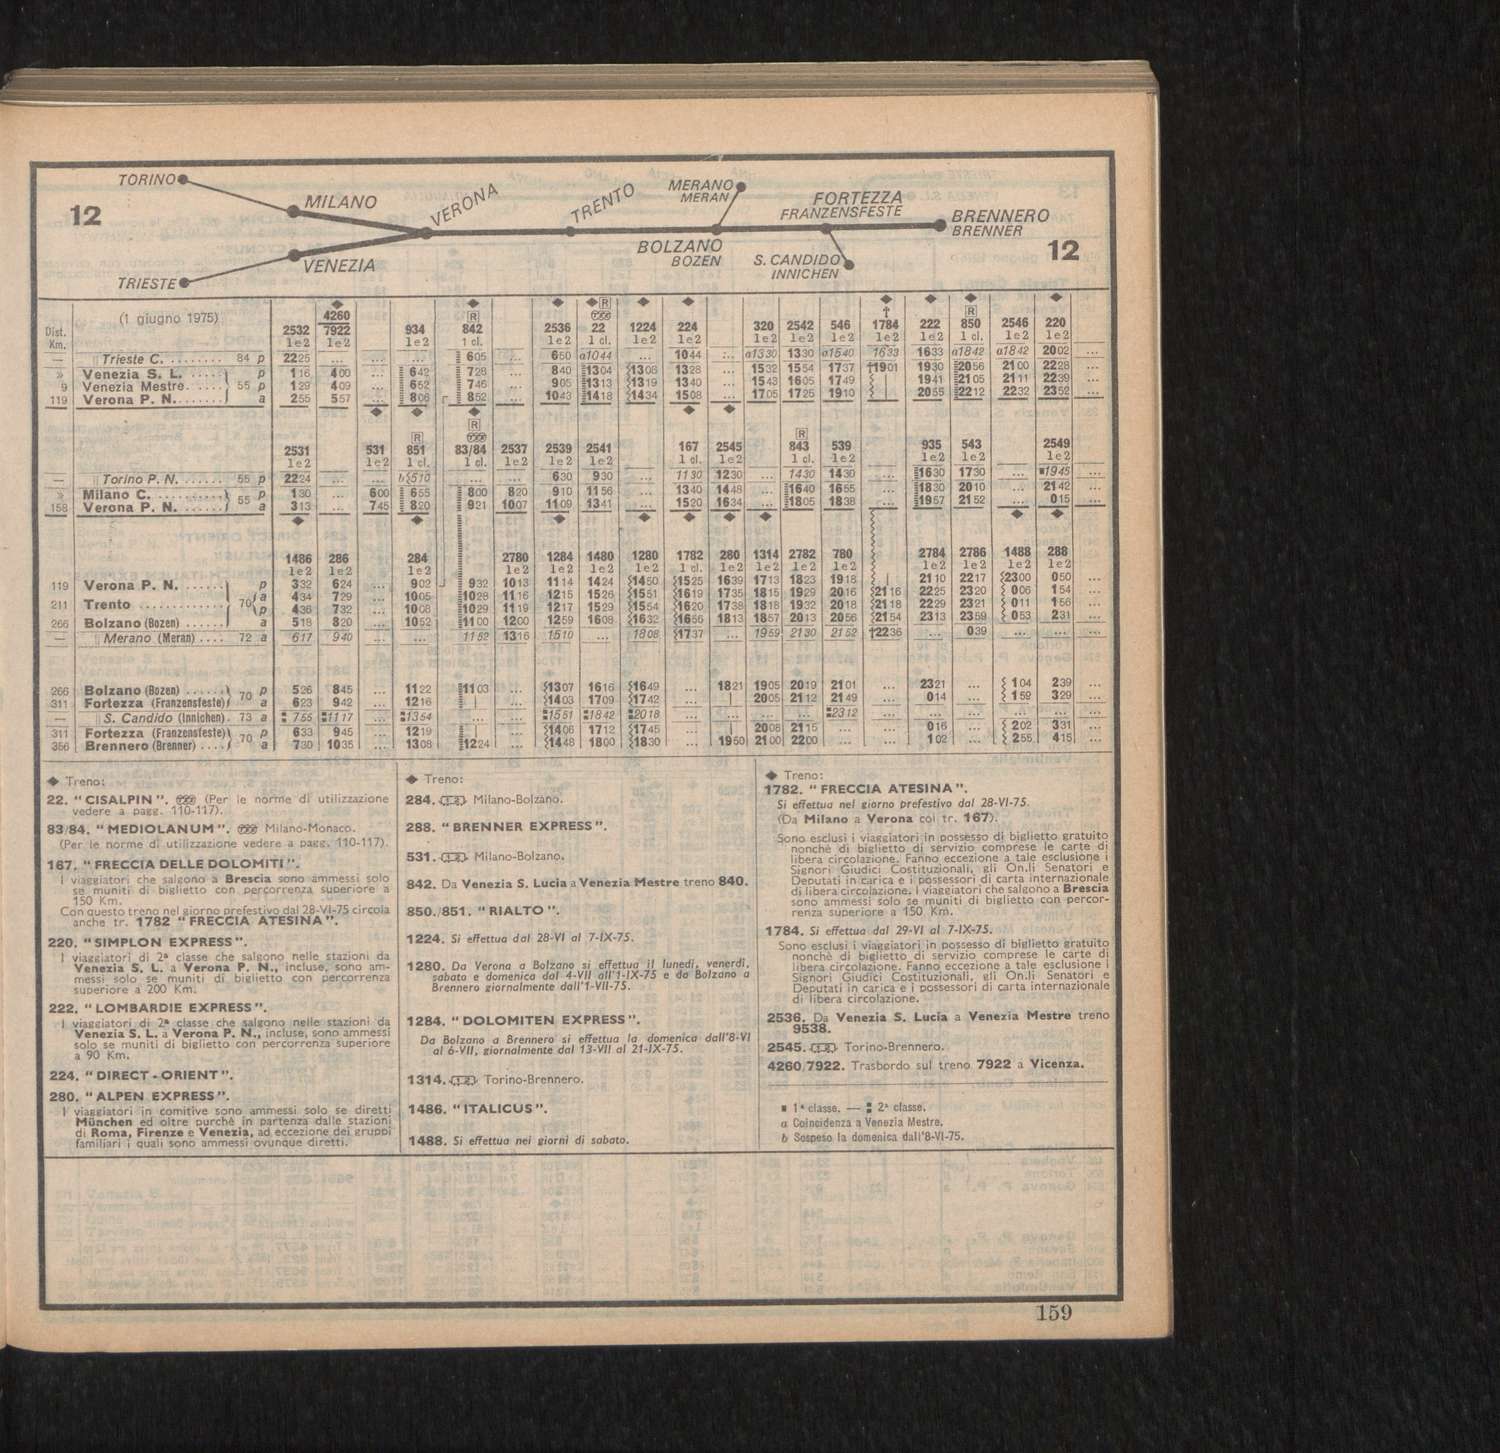 TORINO
MILANO
VERONA
TRENTO
MERANO
MERAN
FORTEZZA
FRANZENSFESTE
BRENNERO
BRENNER
12
VENEZIA
BOLZANO
BOZEN
S. CANDIDO
INNICHEN
12
TRIESTE
(1 giugno 1975)
Dist. Km.
2532 4260 7922 934 842 2536 22 1224 224 320 2542 546 1784 222 850 2546 220
1e2 1e2 1e2 1 cl. 1e2 1 cl. 1e2 1e2 1e2 1e2 1e2 1e2 1e2 1 cl. 1e2 1e2
— Trieste C. ........ 84 p 2225 ... ... ... 605 ... 650 a1044 ... 1044 ... a1330 1330 a1540 1633 1633 a1842 a1842 2002 ...
» Venezia S. L. ..... 55 p 116 400 ... 642 728 ... 840 1304 1308 1328 ... 1532 1554 1737 †1901 1930 2056 2100 2228 ...
9 Venezia Mestre..... 129 409 ... 652 746 ... 905 1313 1319 1340 ... 1543 1605 1749 | 1941 2105 2111 2239 ...
119 Verona P. N. ....... a 255 557 ... 806 852 ... 1043 1418 1434 1508 ... 1705 1725 1910 | 2055 2212 2232 2352 ...
2531 531 851 83/84 2537 2539 2541 167 2545 843 539 935 543 2549
1e2 1e2 1 cl. 1 cl. 1e2 1e2 1e2 1 cl. 1e2 1 cl. 1e2 1e2 1e2 1e2
— Torino P. N. ...... 55 p 2224 ... ... b510 630 930 1130 1230 ... 1430 1430 ... 1630 1730 ... ▪1945 ...
» Milano C. ........... 55 p 130 ... 600 655 800 820 910 1156 ... 1340 1448 ... 1640 1655 ... 1830 2010 ... 2142 ...
158 Verona P. N. ...... a 313 ... 745 820 921 1007 1109 1341 ... 1520 1634 ... 1805 1838 ... 1957 2152 ... 015 ...
1486 286 284 2780 1284 1480 1280 1782 280 1314 2782 780 2784 2786 1488 288
1e2 1e2 1e2 1e2 1e2 1e2 1e2 1 cl. 1e2 1e2 1e2 1e2 1e2 1e2 1e2 1e2
119 Verona P. N. ...... p 332 624 ... 902 932 1013 1114 1424 1450 1525 1639 1713 1823 1918 | 2110 2217 2300 050 ...
211 Trento ............ 70 a 434 729 ... 1005 1028 1116 1215 1526 1551 1619 1735 1815 1929 2016 2116 2225 2320 006 154 ...
p 436 732 ... 1008 1029 1119 1217 1529 1554 1620 1738 1818 1932 2018 2118 2229 2321 011 156 ...
266 Bolzano (Bozen) ...... a 518 820 ... 1052 1100 1200 1259 1608 1632 1656 1813 1857 2013 2056 2154 2313 2359 053 231 ...
— Merano (Meran) .... 72 a 617 940 ... ... 1152 1316 1510 ... 1808 1737 ... 1959 2130 2152 †2236 ... 039 ... ... ...
266 Bolzano (Bozen) ...... 70 p 526 845 ... 1122 1103 ... 1307 1616 1649 1821 1905 2019 2101 ... 2321 ... 104 239 ...
311 Fortezza (Franzensfeste) a 623 942 ... 1216 | ... 1403 1709 1742 | 2005 2112 2149 ... 014 ... 159 329 ...
— S. Candido (Innichen). 73 a 755 1117 ... 1354 ... ... 1551 1842 2018 ... ... ... 2312 ... ... ... ... ... ...
311 Fortezza (Franzensfeste) 70 p 633 945 ... 1219 | ... 1406 1712 1745 | 2006 2115 ... ... 016 ... 202 331 ...
356 Brennero (Brenner) .... a 730 1035 ... 1308 1224 ... 1448 1800 1830 ... 1950 2100 2200 ... ... 102 ... 255 415 ...
◆ Treno:
22. "CISALPIN". (Per le norme di utilizzazione
vedere a pagg. 110-117).
83/84. "MEDIOLANUM". Milano-Monaco.
(Per le norme di utilizzazione vedere a pagg. 110-117).
167. "FRECCIA DELLE DOLOMITI".
I viaggiatori che salgono a Brescia sono ammessi solo
se muniti di biglietto con percorrenza superiore a
150 Km.
Con questo treno nel giorno prefestivo dal 28-VI-75 circola
anche tr. 1782 "FRECCIA ATESINA".
220. "SIMPLON EXPRESS".
I viaggiatori di 2ª classe che salgono nelle stazioni da
Venezia S. L. a Verona P. N., incluse, sono am-
messi solo se muniti di biglietto con percorrenza
superiore a 200 Km.
222. "LOMBARDIE EXPRESS".
I viaggiatori di 2ª classe che salgono nelle stazioni da
Venezia S. L. a Verona P. N., incluse, sono ammessi
solo se muniti di biglietto con percorrenza superiore
a 90 Km.
224. "DIRECT-ORIENT".
280. "ALPEN EXPRESS".
I viaggiatori in comitive sono ammessi solo se diretti
München ed oltre purchè in partenza dalle stazioni
di Roma, Firenze e Venezia, ad eccezione dei gruppi
familiari i quali sono ammessi ovunque diretti.
◆ Treno:
284. Milano-Bolzano.
288. "BRENNER EXPRESS".
531. Milano-Bolzano.
842. Da Venezia S. Lucia a Venezia Mestre treno 840.
850./851. "RIALTO".
1224. Si effettua dal 28-VI al 7-IX-75.
1280. Da Verona a Bolzano si effettua il lunedì, venerdì,
sabato e domenica dal 4-VII all'1-IX-75 e da Bolzano a
Brennero giornalmente dall'1-VII-75.
1284. "DOLOMITEN EXPRESS".
Da Bolzano a Brennero si effettua la domenica dall'8-VI
al 6-VII, giornalmente dal 13-VII al 21-IX-75.
1314. Torino-Brennero.
1486. "ITALICUS".
1488. Si effettua nei giorni di sabato.
◆ Treno:
1782. "FRECCIA ATESINA".
Si effettua nel giorno prefestivo dal 28-VI-75.
(Da Milano a Verona col tr. 167).
Sono esclusi i viaggiatori in possesso di biglietto gratuito
nonchè di biglietto di servizio comprese le carte di
libera circolazione. Fanno eccezione a tale esclusione i
Signori Giudici Costituzionali, gli On.li Senatori e
Deputati in carica e i possessori di carta internazionale
di libera circolazione. I viaggiatori che salgono a Brescia
sono ammessi solo se muniti di biglietto con percor-
renza superiore a 150 Km.
1784. Si effettua dal 29-VI al 7-IX-75.
Sono esclusi i viaggiatori in possesso di biglietto gratuito
nonchè di biglietto di servizio comprese le carte di
libera circolazione. Fanno eccezione a tale esclusione i
Signori Giudici Costituzionali, gli On.li Senatori e
Deputati in carica e i possessori di carta internazionale
di libera circolazione.
2536. Da Venezia S. Lucia a Venezia Mestre treno
9538.
2545. Torino-Brennero.
4260/7922. Trasbordo sul treno 7922 a Vicenza.
▪ 1ª classe. — 2ª classe.
a Coincidenza a Venezia Mestre.
b Sospeso la domenica dall'8-VI-75.
159